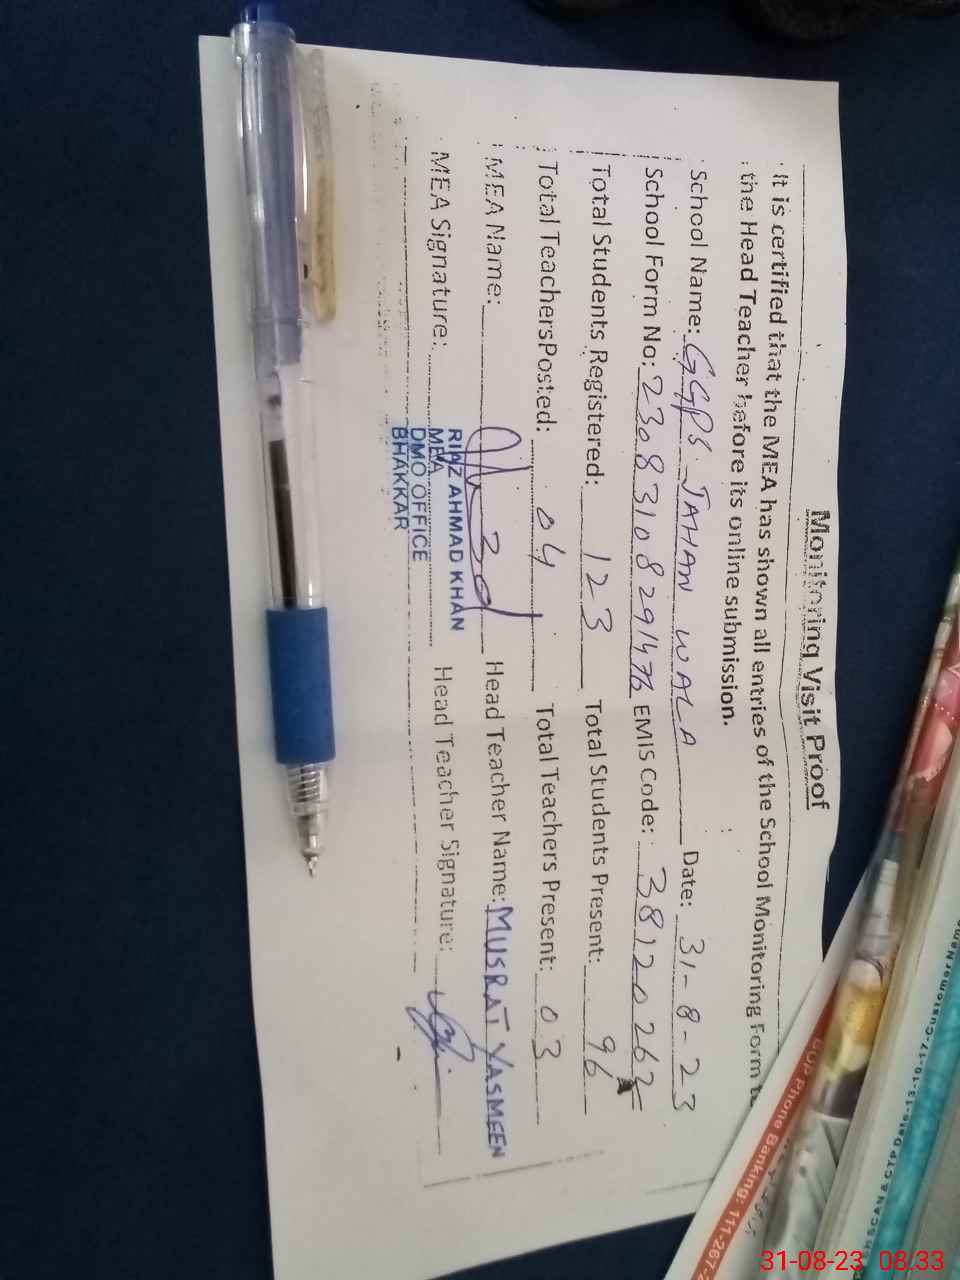 Monitoring Visit Proof
It is certified that the MEA has shown all entries of the School Monitoring Form to
the Head Teacher before its online submission.
School Name: GGPS JAHAN WALA Date: 31-8-23
School Form No: 2308310829147 EMIS Code: 3812026
Total Students Registered: 123 Total Students Present: 96
Total TeachersPosted: 04 Total Teachers Present: 03
MEA Name: Head Teacher Name: MUSRAT YASMEEN
MEA Signature: Head Teacher Signature:
RIAZ AHMAD KHAN
MEA
DMO OFFICE
BHAKKAR
Phone Banking: 111-267-2
SCAN & CTP Date-13-10-17-Customer Name
31-08-23 08.33